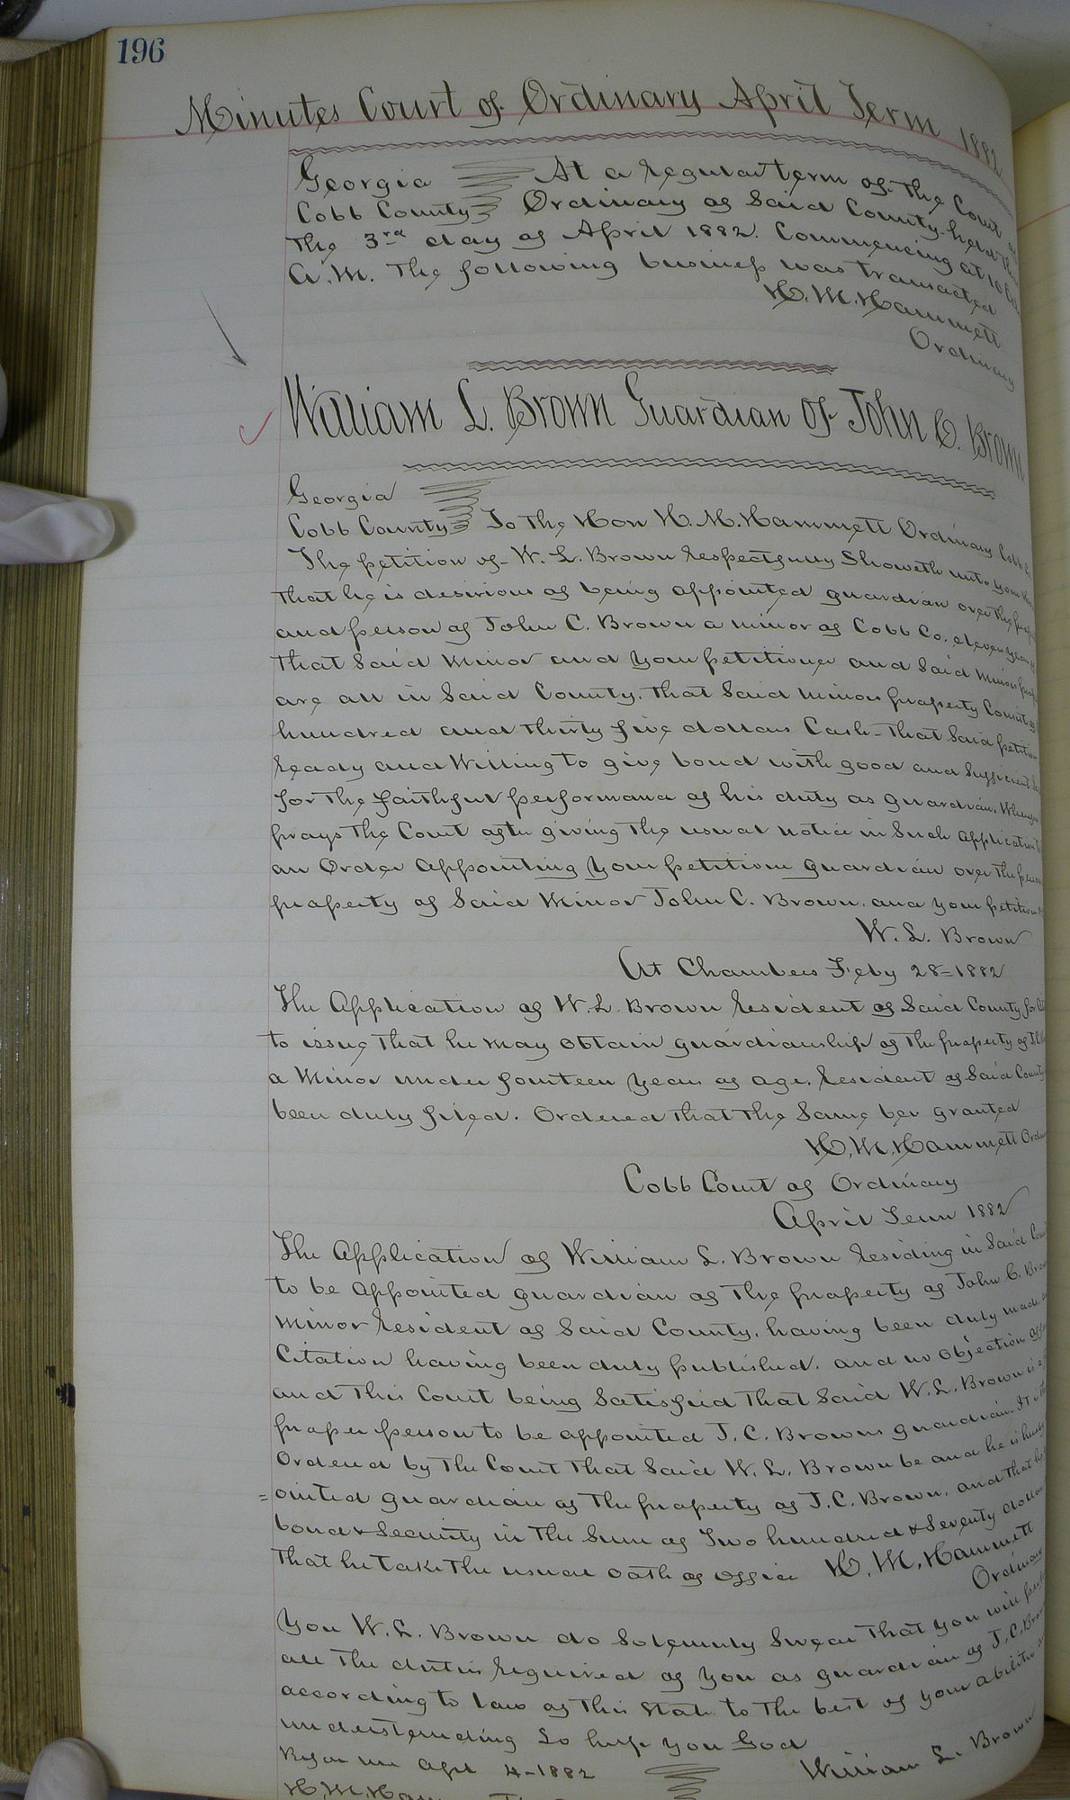 196
Minutes Court of Ordinary April Term 1882
Georgia At a regular term of the Court of
Cobb County Ordinary of Said County held
The 3rd day of April 1882. Commencing at 10
A.M. The following business was transacted
H. M. Hammett
Ordinary
William L. Brown Guardian of John C. Brown
Georgia
Cobb County To The Hon H. M. Hammett Ordinary Cobb
The petition of W. L. Brown respectfully Showeth unto your
that he is desirious of being appointed guardian over the
and person of John C. Brown a minor of Cobb Co. eleven years
That Said Minor and your petitioner and Said minors
are all in Said County, that Said minors property
hundred and thirty five dollars Cash - that Said
ready and Willing to give bond with good and Sufficient
for the faithful performance of his duty as guardian.
prays The Court after giving The usual notice in Such application
an Order appointing your petitioner guardian over the
property of Said Minor John C. Brown. and your
W. L. Brown
At Chambers Feby 28=1882
The Application of W. L. Brown resident of Said County for
to issue that he may obtain guardianship of the property of
a Minor under fourteen years of age. resident of Said County
been duly filed. Ordered that the Same bee granted
H. M. Hammett
Cobb Court of Ordinary
April Term 1882
The Application of William L. Brown residing in Said
to be appointed guardian of the property of John C.
minor resident of Said County, having been duly made
Citation having been duly published, and no Objection
and This Court being Satisfied That Said W. L. Brown is a
proper person to be appointed J. C. Browns guardian. It is
Ordered by The Court That Said W. L. Brown be and he is hereby
=ointed guardian of the property of J. C. Brown. and that he
bond & Security in The Sum of Two hundred & Seventy dollars
That he take the usual oath of office H. M. Hammett
Ordinary
You W. L. Brown do Solemnly Swear That you will
all The duties required of you as guardian of J. C.
according to law of This State to The best of your abilities
understanding So help you God
Before me Apl 4-1882 William L. Brown